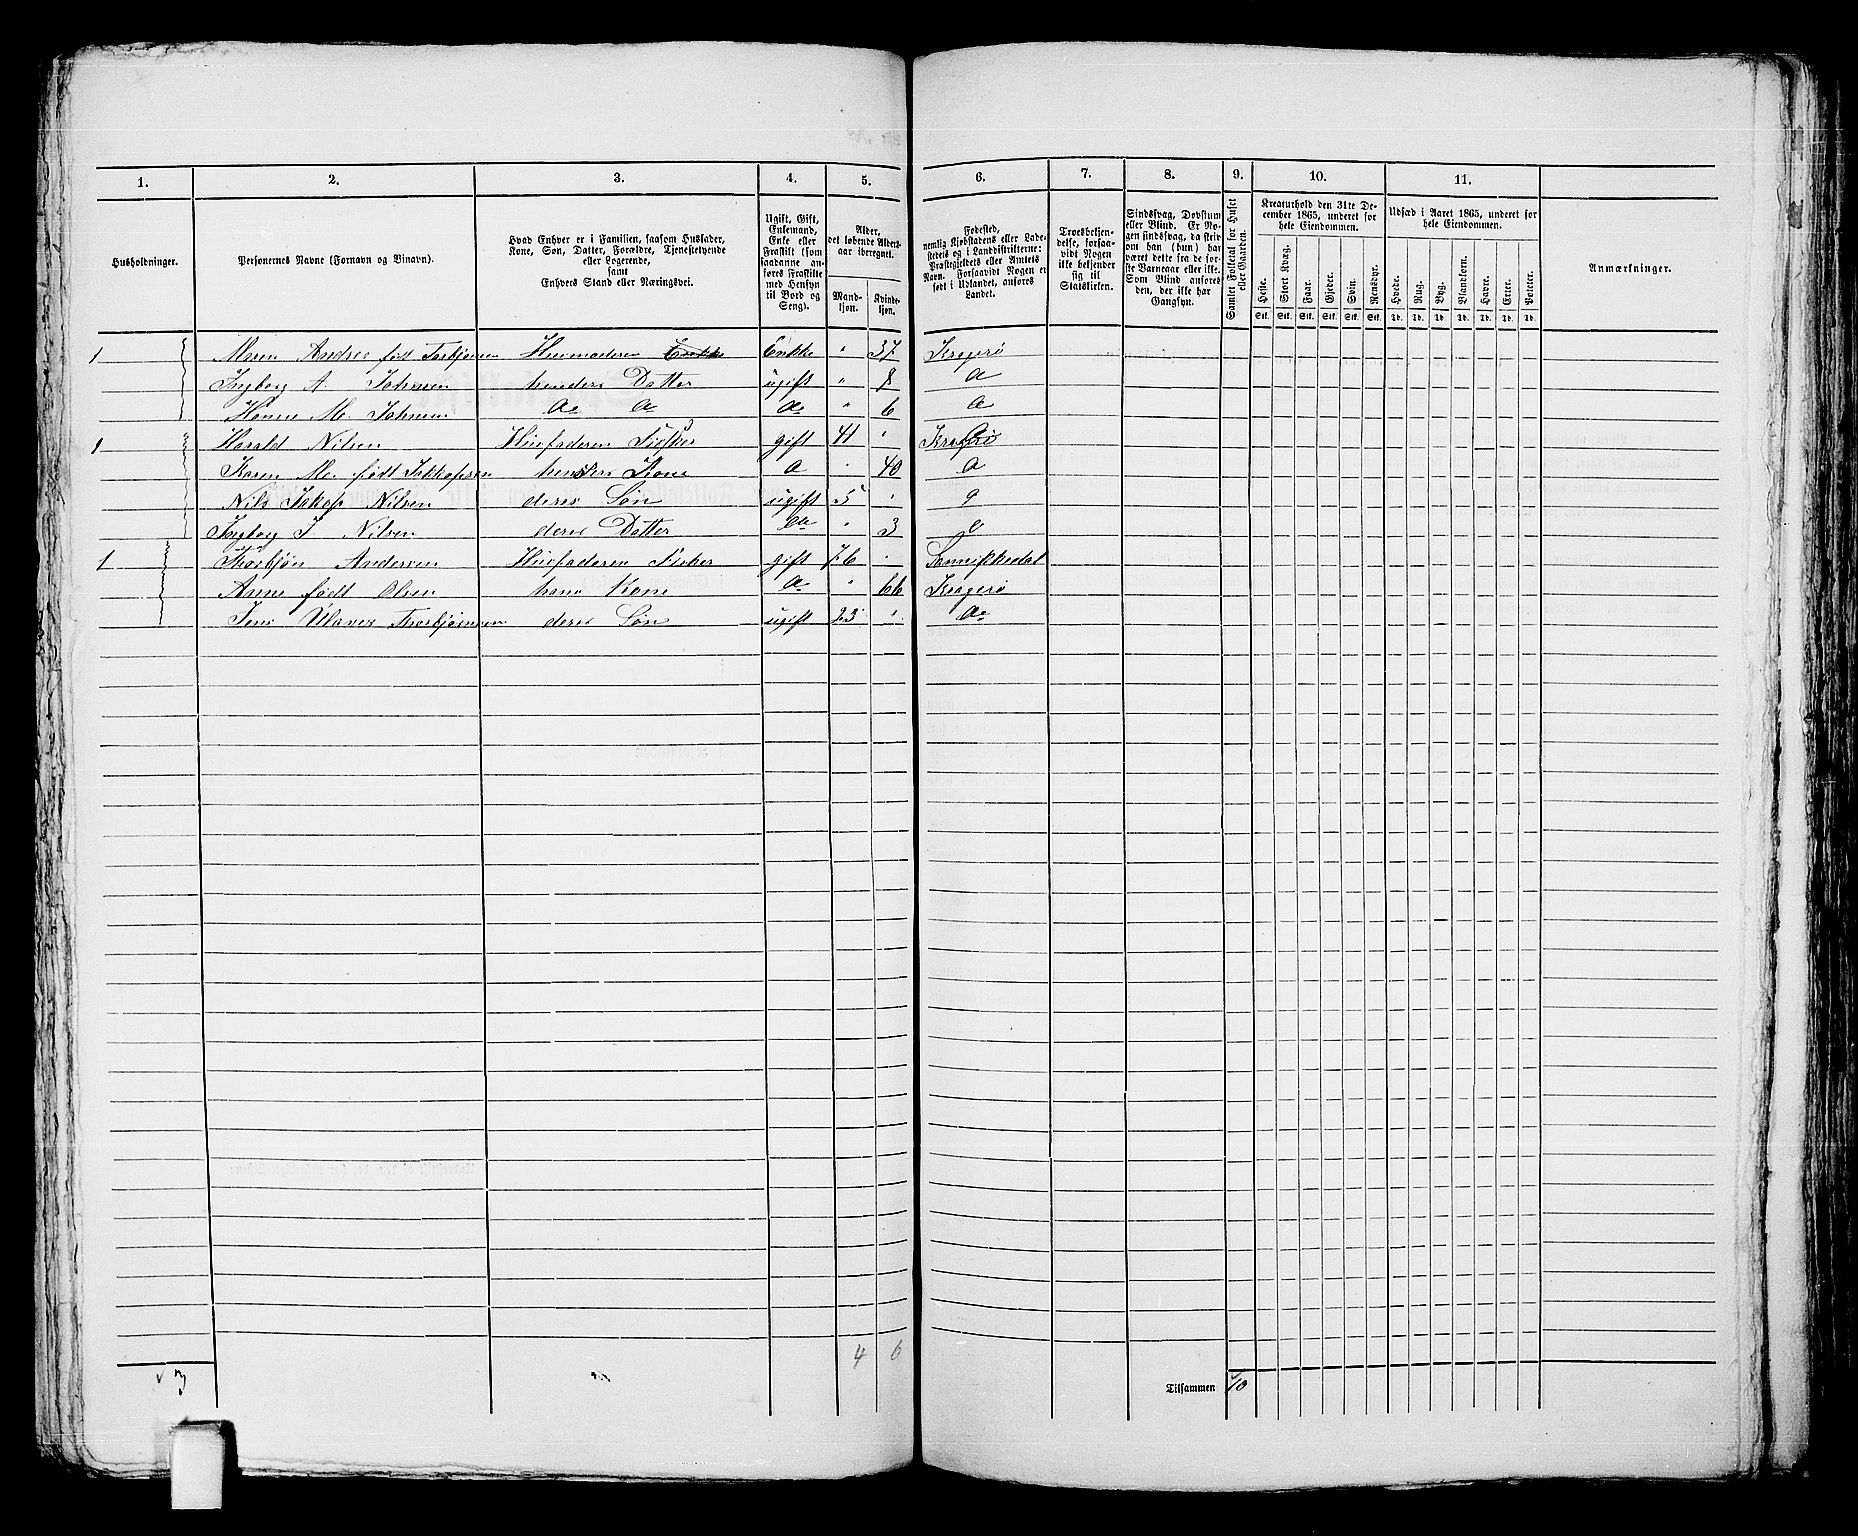 1. 2. 3. 4. 5. 6. 7. 8. 9. 10. 11.
Husholdninger.
Personernes Navne (Fornavn og Binavn).
Hvad Enhver er i Familien, saasom Husfader, Kone, Søn, Datter, Forældre, Tjenestetyende eller Logerende, samt Enhvers Stand eller Næringsvei.
Ugift, Gift, Enkemand, Enke eller Fraskilt (som saadanne anføres Fraskilte med Hensyn til Bord og Seng).
Alder, det løbende Aldersaar iberegnet.
Mandkjøn. Kvindekjøn.
Fødested, nemlig Kjøbstadens eller Ladestedets og i Landdistrikterne: Præstegjeldets eller Amtets Navn. Forsaavidt Nogen er født i Udlandet, anføres Landet.
Troesbekjendelse, forsaavidt Nogen ikke bekjender sig til Statskirken.
Sindssvag, Døvstum eller Blind. Er Nogen sindssvag, da skrives om han (hun) har været dette fra de første Barneaar eller ikke. Som Blind anføres den, der ikke har Gangsyn.
Samlet Folketal for Huset eller Gaarden.
Kreaturhold den 31te December 1865, underet for hele Eiendommen.
Heste. Stort Kvæg. Faar. Gjeder. Svin. Rensdyr.
Stk. Stk. Stk. Stk. Stk. Stk.
Udsæd i Aaret 1865, underet for hele Eiendommen.
Hvede. Rug. Byg. Blandkorn. Havre. Erter. Poteter.
Td. Td. Td. Td. Td. Td. Td.
Anmærkninger.
1 Andrea født Husmoderen Enke " 37 Kragerø
Ingborg A. Johnsen hendes Datter ugift " 8 d
Hanne M. Johnsen do d do " 6 d
1 Harald Nilsen Husfaderen Fisker gift 41 " Kragerø
Karen M. født Jakkopsen Kone d " 40 d
Nils Jakop Nilsen deres Søn ugift 5 " d
Ingborg J. Nilsen deres Datter do " 3 d
1 Thorbjøn Andersen Husfaderen Fisker gift 76 " Sannikkedal
Anne født Olsen hans Kone d " 66 Kragerø
Jens Ulaves Thorbjørnsen deres Søn ugift 23 " do
3 4 6
Tilsammen 10